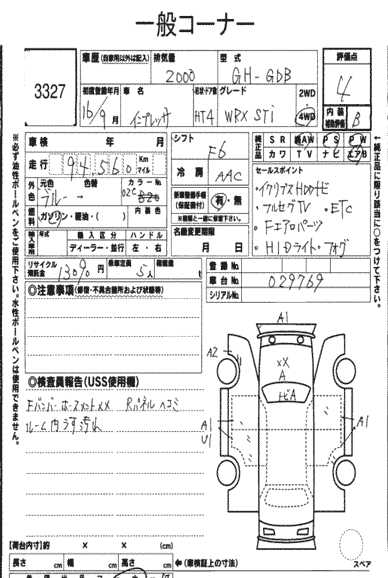 一般コーナー
3327
車歴 (自家用以外は記入) 排気量 型式 評価点
2000 GH-GDB 4
初度登録年月 車名 形状・ドア数 グレード 2WD
16/9月 インプレッサ HT4 WRX STi 4WD
内装補助評価 B
車検 年 月 シフト F6
純正品 SR AW PS PW
カワ TV ナビ エアB
走行 94,560 Km マイル
冷房 AAC
セールスポイント
・イクリプスHDDナビ
・フルセグTV ・ETC
・Fエアロパーツ
・HIDライト・フォグ
外色 元色 色替 カラーNo.
ブルー 02C
内装色
燃料 ガソリン・軽油・( )
新車整備手帳(保証書付) 有・無
名義変更期限 月 日
輸入車 年式 輸入区分 ハンドル
ディーラー・並行 左・右
リサイクル預託金 円 乗車定員 5人 積載量 t
登録No.
車台No. 029769
シリアルNo.
◎注意事項(修復・不具合箇所および状態等)
◎検査員報告(USS使用欄)
Fバンパーホースメント××　Rパネルヘコミ
ルーム内うす汚れ
A2
××
A
トビA
A1
U1
A1
スペア
【荷台内寸】約 × × (cm)
長さ cm 幅 cm 高さ cm ←(車検証上の寸法)
※必ず油性ボールペンをご使用下さい。水性ボールペンは使用できません。
←純正品に限り該当に○をつけて下さい。